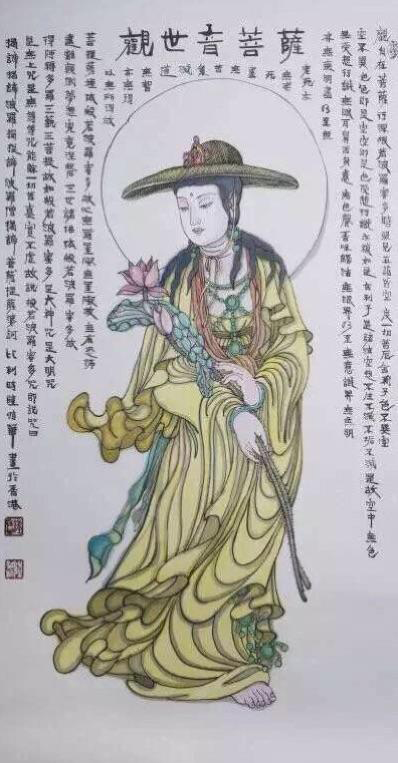 觀世音菩薩
觀自在菩薩行深般若波羅蜜多時照見五蘊皆空度一切苦厄舍利子色不異空
空不異色色即是空空即是色受想行識亦復如是舍利子是諸法空想不生不滅不垢不減是故空中無色
無受想行識無眼耳鼻舌身意無色聲香味觸法無眼界乃至無意識界無無明
亦無無明盡乃至無
老死亦
無老
死
盡無苦集滅道
無智
亦無得
以無所得故
菩提薩埵依般若波羅蜜多故心無罣礙無罣礙故無有恐怖
遠離顛倒夢想究竟涅槃三世諸佛依般若波羅蜜多故
得阿耨多羅三藐三菩提故知般若波羅蜜多是大神咒是大明咒
是無上咒是無等等咒能除一切苦真實不虛故說般若波羅蜜多咒即說咒曰
揭諦揭諦波羅揭諦波羅僧揭諦菩提薩婆訶 比利時 華畫於香港